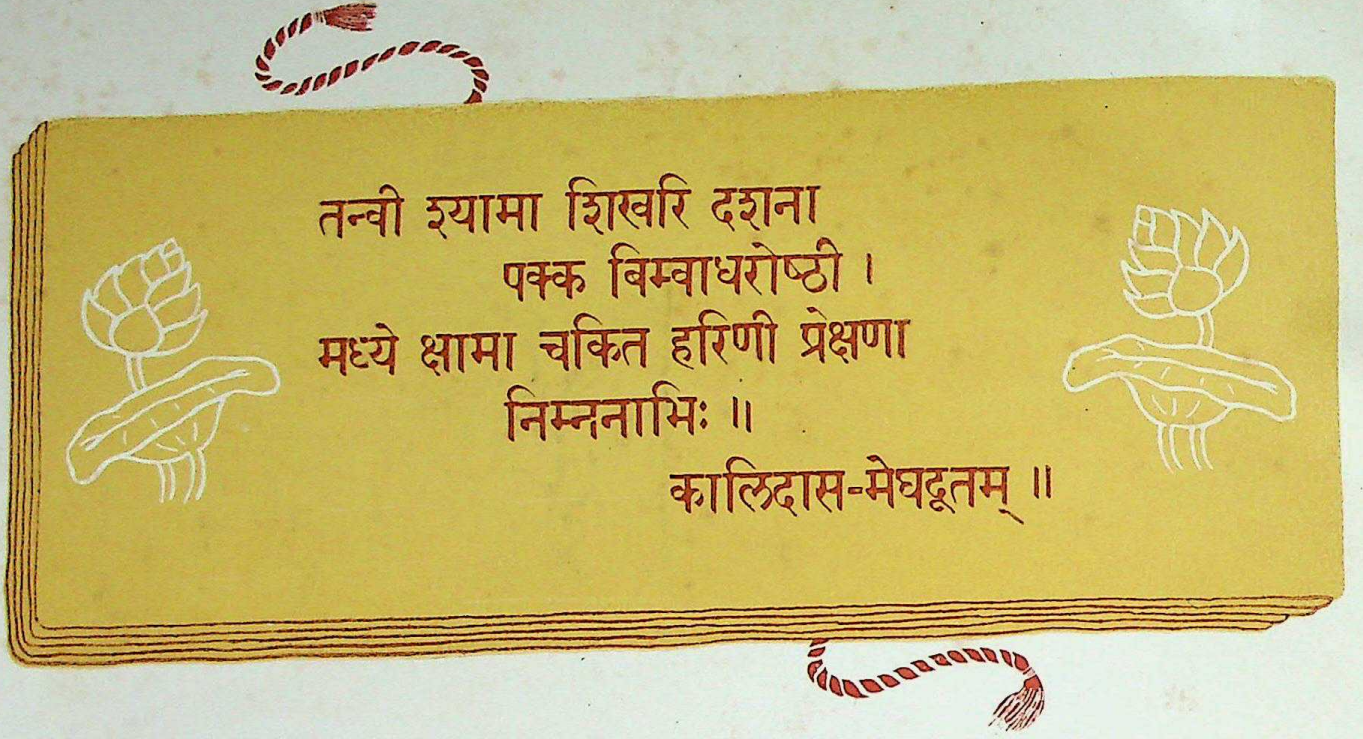 तन्वी श्यामा शिखरि दशना
पक्क बिम्वाधरोष्ठी ।
मध्ये क्षामा चकित हरिणी प्रेक्षणा
निम्ननाभिः ॥
कालिदास-मेघदूतम् ॥